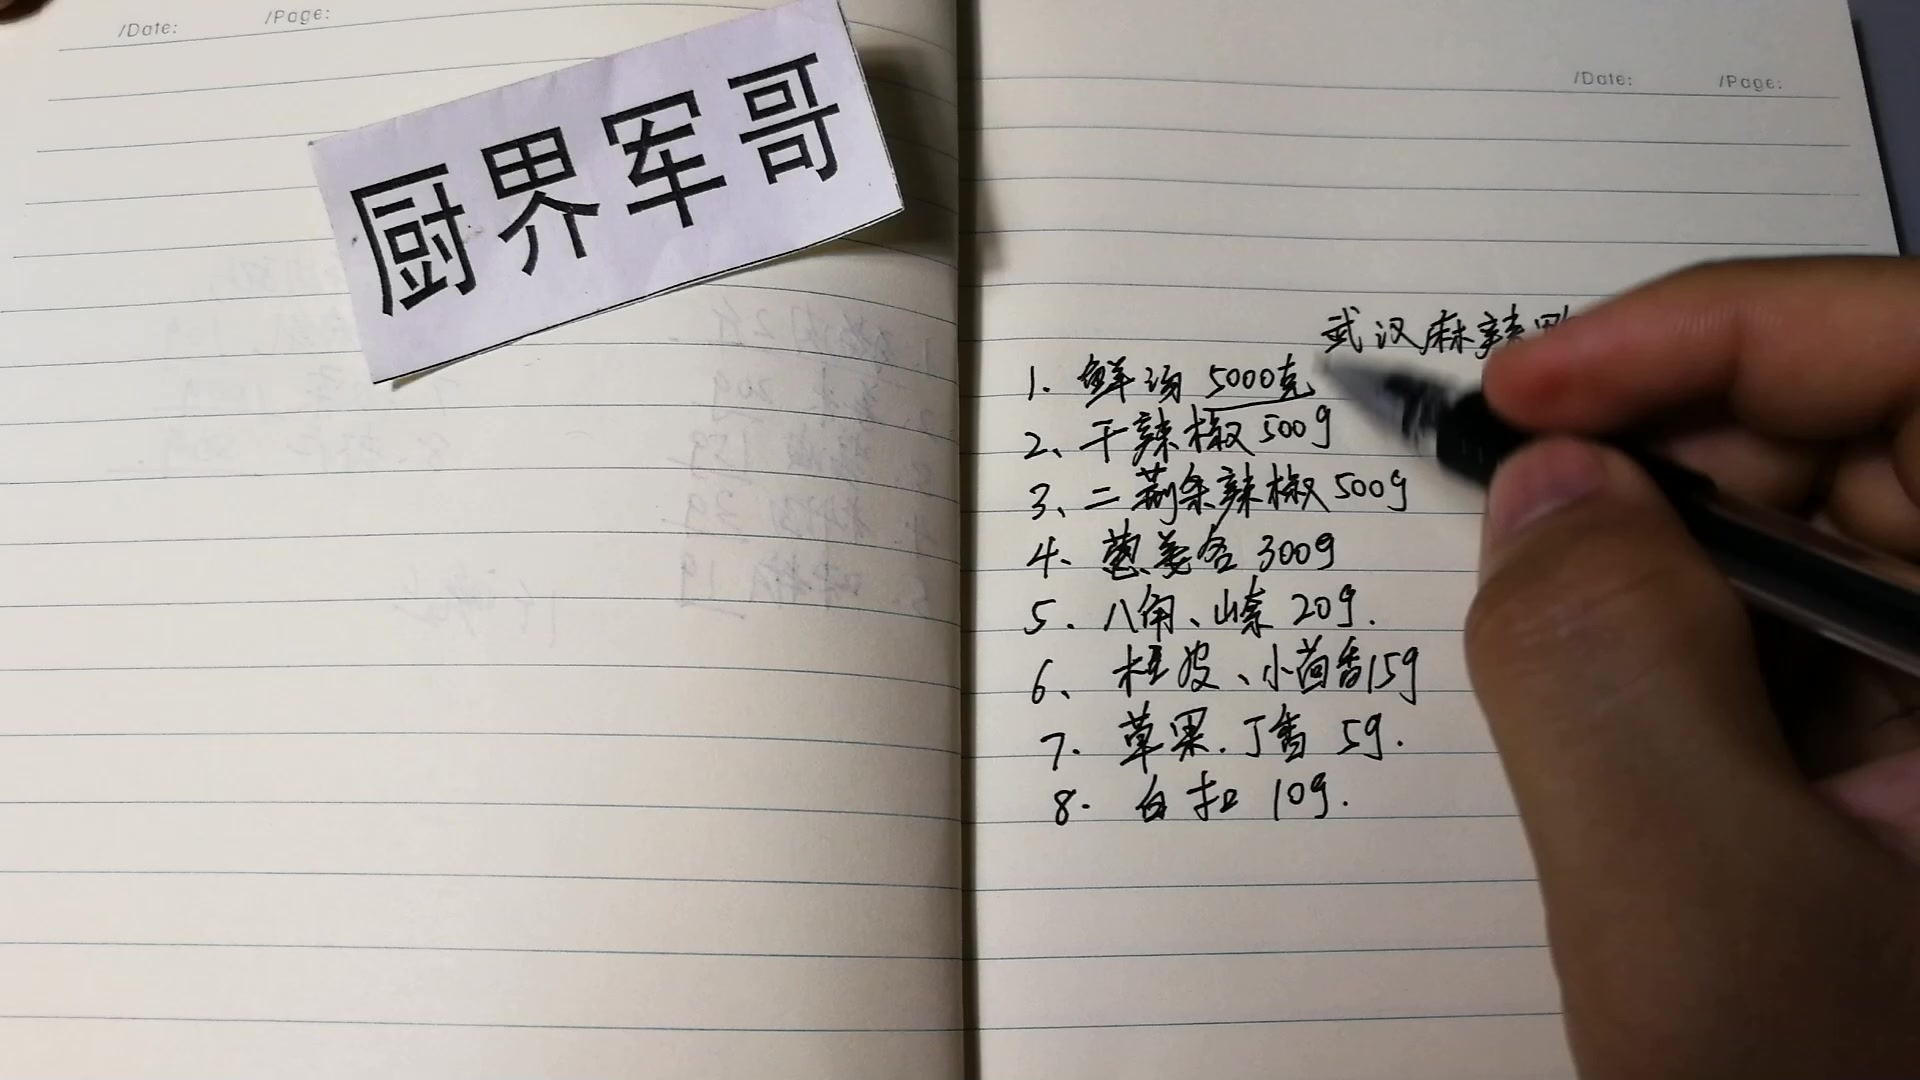 /Date: /Page:
厨界军哥
/Date: /Page:
武汉麻辣鸭
1. 鲜汤 5000克
2、干辣椒 500g
3、二荆条辣椒 500g
4、葱姜各 300g
5. 八角、山奈 20g.
6、桂皮、小茴香15g
7. 草果.丁香 5g.
8. 白扣 10g.